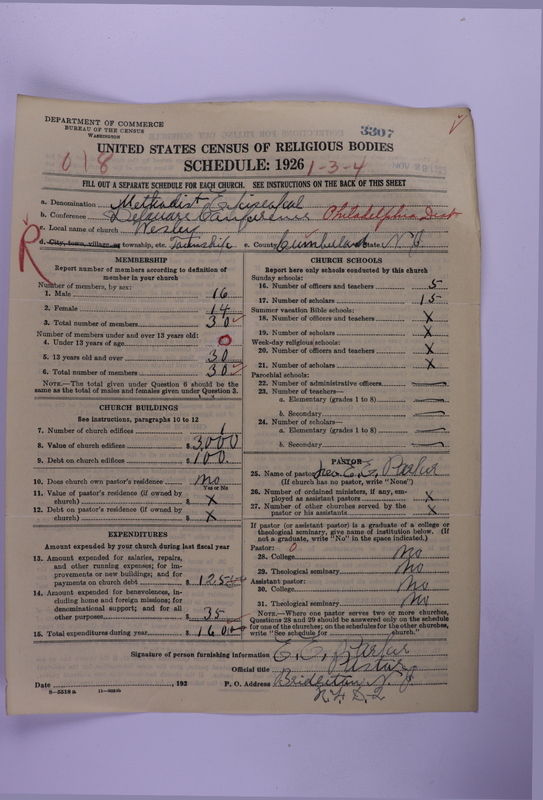 DEPARTMENT OF COMMERCE
BUREAU OF THE CENSUS
WASHINGTON
3307
UNITED STATES CENSUS OF RELIGIOUS BODIES
018 SCHEDULE: 1926 1-3-4
FILL OUT A SEPARATE SCHEDULE FOR EACH CHURCH. SEE INSTRUCTIONS ON THE BACK OF THIS SHEET
a. Denomination Methodist Episcopal
b. Conference Delaware Conference Philadelphia Dist
c. Local name of church Wesley
R
d. City, town, village, or township, etc. Township e. County Cumberland State N. J.
MEMBERSHIP
Report number of members according to definition of
member in your church
Number of members, by sex:
1. Male 16
2. Female 14
3. Total number of members 30
Number of members under and over 13 years old:
4. Under 13 years of age 0
5. 13 years old and over 30
6. Total number of members 30
NOTE.—The total given under Question 6 should be the
same as the total of males and females given under Question 3.
CHURCH BUILDINGS
See instructions, paragraphs 10 to 12
7. Number of church edifices 1
8. Value of church edifices $ 3000
9. Debt on church edifices $ 100.
10. Does church own pastor's residence No
Yes or No
11. Value of pastor's residence (if owned by
church) $ X
12. Debt on pastor's residence (if owned by
church) $ X
EXPENDITURES
Amount expended by your church during last fiscal year
13. Amount expended for salaries, repairs,
and other running expenses; for im-
provements or new buildings; and for
payments on church debt $ 125
14. Amount expended for benevolences, in-
cluding home and foreign missions; for
denominational support; and for all
other purposes $ 35
15. Total expenditures during year $ 160
CHURCH SCHOOLS
Report here only schools conducted by this church
Sunday schools:
16. Number of officers and teachers 5
17. Number of scholars 15
Summer vacation Bible schools:
18. Number of officers and teachers X
19. Number of scholars X
Week-day religious schools:
20. Number of officers and teachers X
21. Number of scholars X
Parochial schools:
22. Number of administrative officers
23. Number of teachers—
a. Elementary (grades 1 to 8)
b. Secondary
24. Number of scholars—
a. Elementary (grades 1 to 8)
b. Secondary
PASTOR
25. Name of pastor Rev E. E. Parker
(If church has no pastor, write "None")
26. Number of ordained ministers, if any, em-
ployed as assistant pastors X
27. Number of other churches served by the
pastor or his assistants X
If pastor (or assistant pastor) is a graduate of a college or
theological seminary, give name of institution below. (If
not a graduate, write "No" in the space indicated.)
Pastor: 0
28. College No
29. Theological seminary No
Assistant pastor:
30. College No
31. Theological seminary No
NOTE.—Where one pastor serves two or more churches,
Questions 28 and 29 should be answered only on the schedule
for one of the churches; on the schedules for the other churches,
write "See schedule for church."
Signature of person furnishing information E. E. Parker
Official title Pastor
Date , 192 P. O. Address Bridgeton N. J.
R. F. D-2
8-5518a